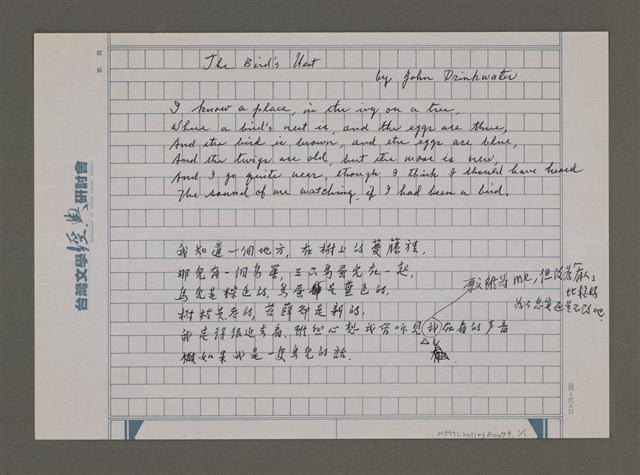 The Bird's Nest
by John Drinkwater
I know a place, in the ivy on a tree,
Where a bird's nest is, and the eggs are three,
And the bird is brown, and the eggs are blue,
And the twigs are old, but the moss is new,
And I go quite near, though I think I should have heard
The sound of me watching, if I had been a bird.
台灣文學經典研討會
我知道一個地方,在樹上的蔓藤裡,
那兒有一個鳥巢,三只鳥蛋兒在一起,
鳥兒是棕色的,鳥蛋是藍色的,
樹枝是老的,苔蘚卻是新的,
我走得很近去看,雖然心想我當听見我在看的声音
假如我是一隻鳥兒的話.
原文雖為 me, 但
比較好